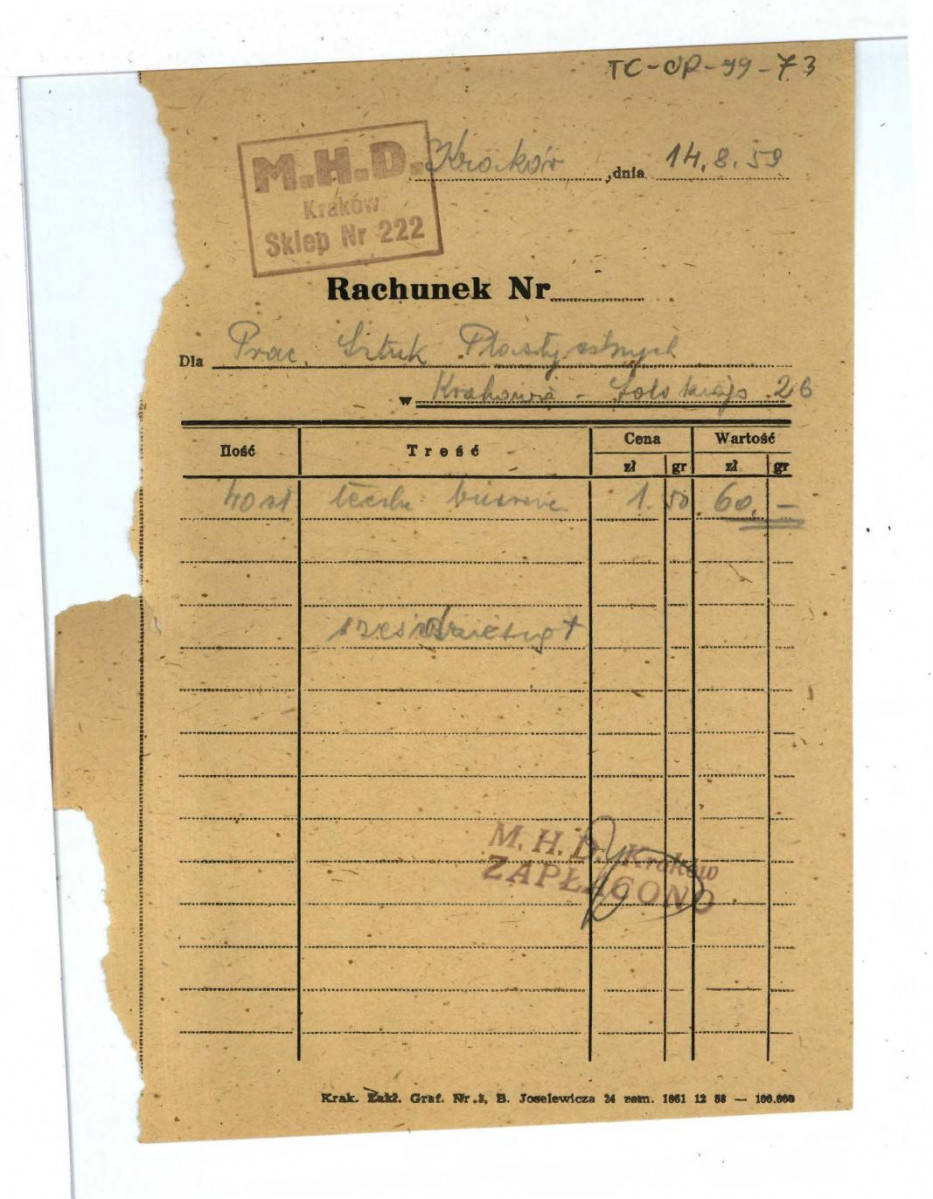 TC-OP-99-73
M.H.D.
Kraków
Sklep Nr 222
Kraków, dnia 14.8.59
Rachunek Nr
Dla Prac. Sztuk Plastycznych
w Krakowie - 26
Ilość Treść Cena Wartość
zł gr zł gr
40 szt 1.50 60.-
sześćdziesiąt
M. H. D. Kraków
ZAPŁACONO
Krak. Zakł. Graf. Nr 3, B. Joselewicza 24 zam. 1061 12 58 — 100.000